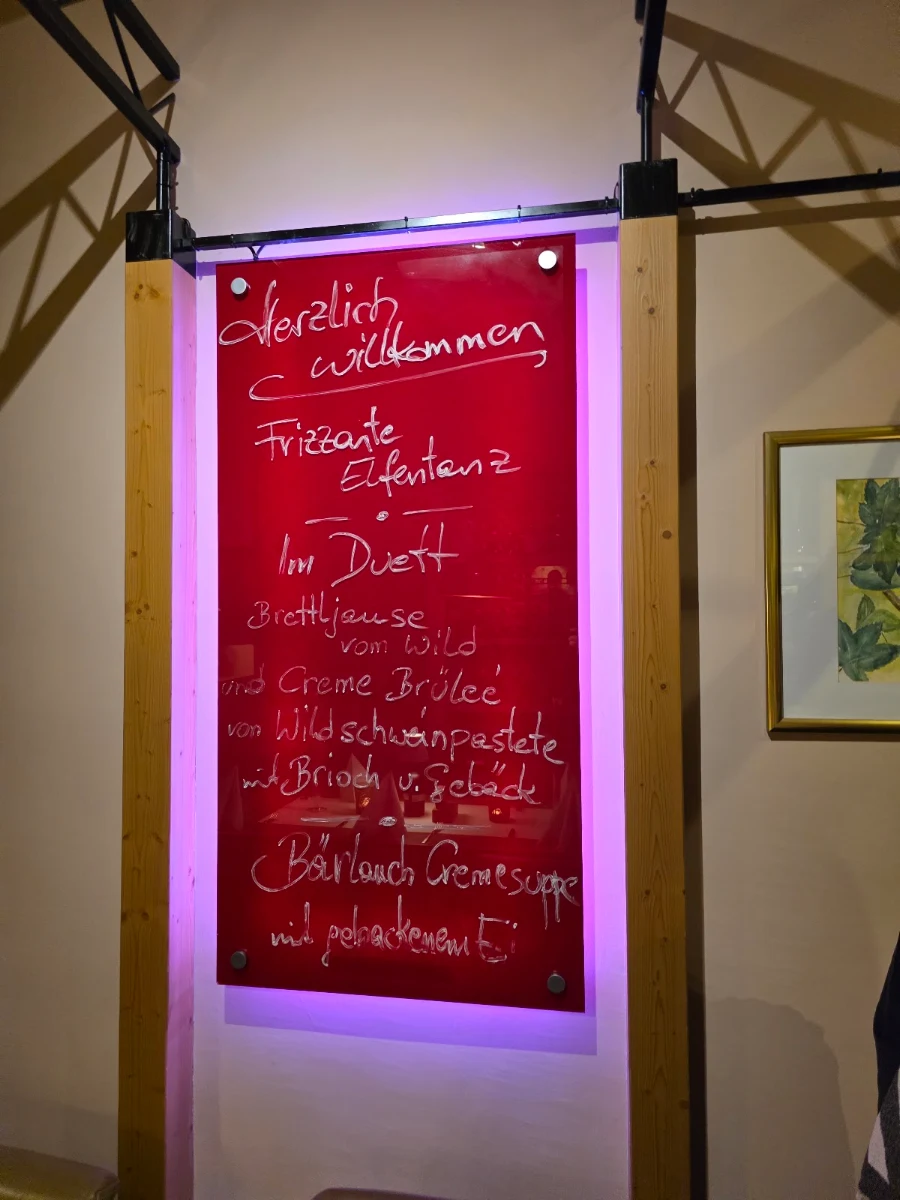 Herzlich
willkommen
Frizzante
Elfentanz
Im Duett
Brettljause
vom Wild
und Creme Brûleé
von Wildschweinpastete
mit Brioch u. Gebäck
Bärlauch Cremesuppe
mit gebackenem Ei